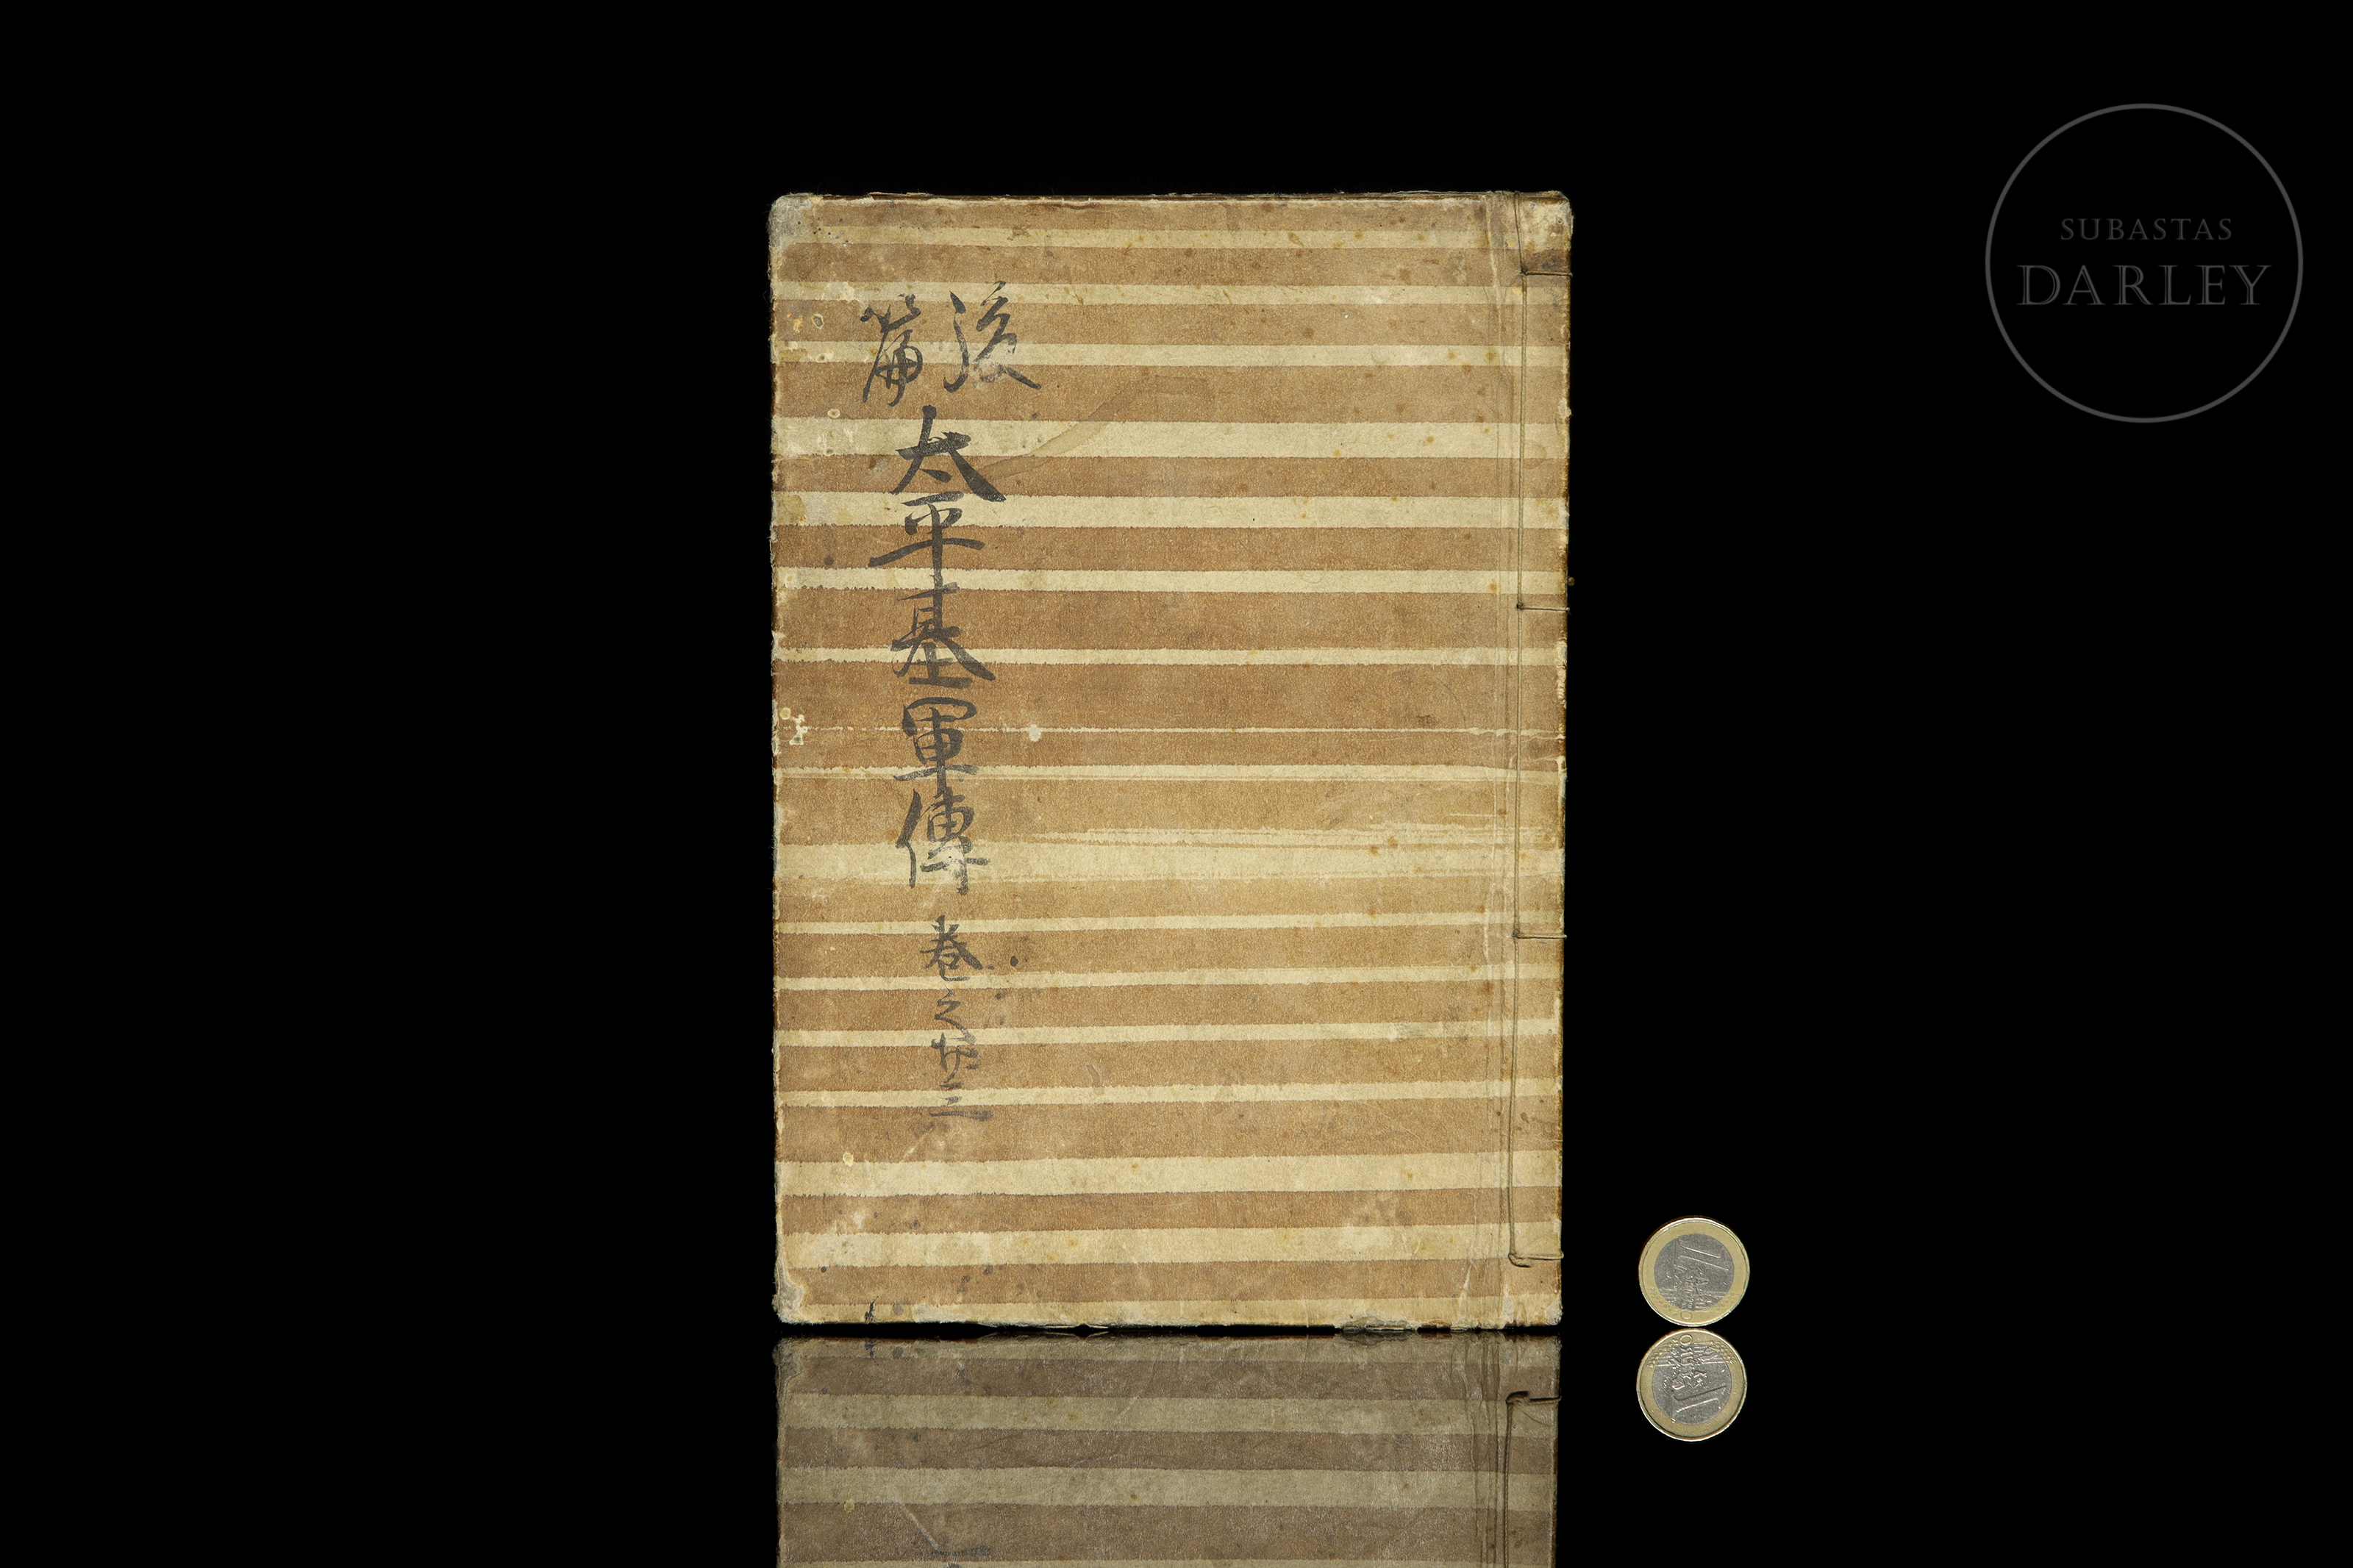 後篇
太平基軍傳 巻之廿三
SUBASTAS
DARLEY